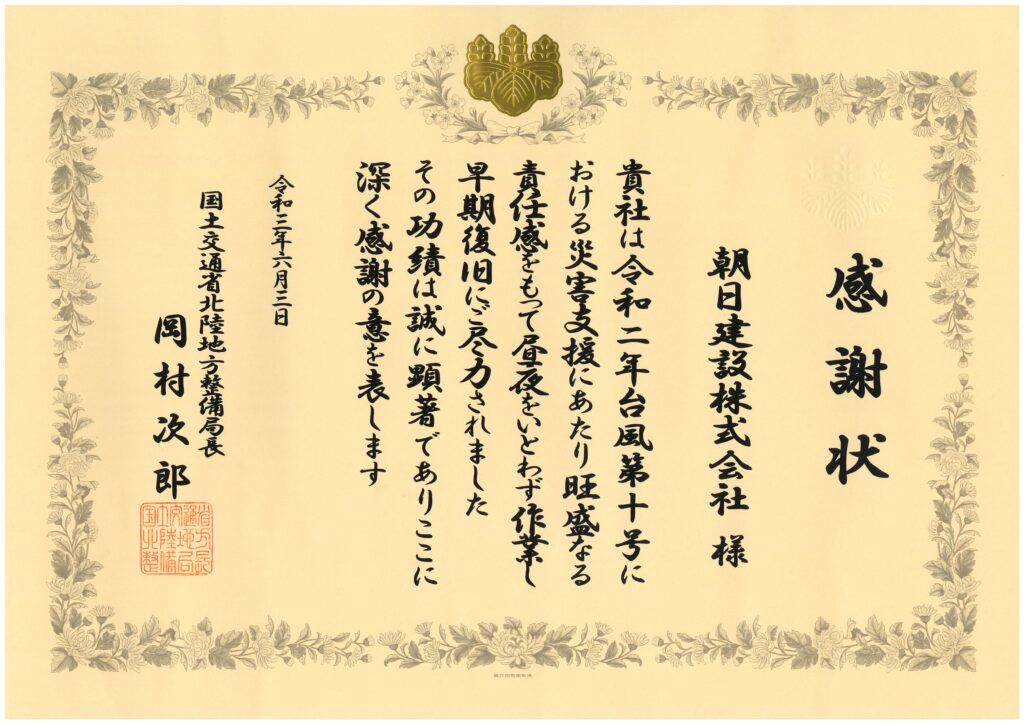 感謝状
朝日建設株式会社 様
貴社は令和二年台風第十号に
おける災害支援にあたり旺盛なる
責任感をもって昼夜をいとわず作業し
早期復旧にご尽力されました
その功績は誠に顕著でありここに
深く感謝の意を表します
令和三年六月三日
国土交通省北陸地方整備局長
岡村次郎